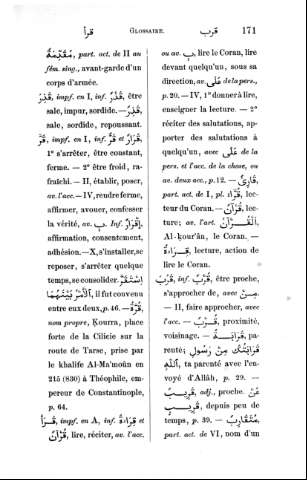 قرأ GLOSSAIRE. قرب 171
مُقَدِّمَةٌ, part. act. de II au
fém. sing., avant-garde d'un
corps d'armée.
قَذِرَ, impf. en I, inf. قَذَرٌ, être
sale, impur, sordide. — قَذِرٌ,
sale, sordide, repoussant.
قَرَّ, impf. en I, inf. قَرٌّ et قَرَارٌ,
1° s'arrêter, être constant,
ferme. — 2° être froid, ra-
fraîchi. — II, établir, poser,
av. l'acc. — IV, rendre ferme,
affirmer, avouer, confesser
la vérité, av. بِ, inf. إِقْرَارٌ,
affirmation, consentement,
adhésion. — X, s'installer, se
reposer, s'arrêter quelque
temps, se consolider. اِسْتَقَرَّ
الأَمْرُ بَيْنَهُمَا, il fut convenu
entre eux deux, p. 46. — قُرَّةُ,
nom propre, Ḳourra, place
forte de la Cilicie sur la
route de Tarse, prise par
le khalife Al-Ma'moûn en
215 (830) à Théophile, em-
pereur de Constantinople,
p. 64.
قَرَأَ, impf. en A, inf. قِرَاءَةٌ et
قُرْآنٌ, lire, réciter, av. l'acc.
ou av. بِ, lire le Coran, lire
devant quelqu'un, sous sa
direction, av. عَلَى de la pers.,
p. 20. — IV, 1° donner à lire,
enseigner la lecture. — 2°
réciter des salutations, ap-
porter des salutations à
quelqu'un, avec عَلَى de la
pers. et l'acc. de la chose, ou
av. deux acc., p. 12. — قَارِئٌ,
part. act. de I, pl. قُرَّاءٌ, lec-
teur du Coran. — قُرْآنٌ, lec-
ture; av. l'art. اَلْقُرْآنُ,
Al-ḳour'ân, le Coran. —
قِرَاءَةٌ, lecture, action de
lire le Coran.
قَرُبَ, inf. قُرْبٌ, être proche,
s'approcher de, avec مِنْ
— II, faire approcher, avec
l'acc. — قُرْبٌ, proximité,
voisinage. — قَرَابَةٌ, pa-
renté; قَرَابَتُكَ مِنْ رَسُولِ
اللهِ, ta parenté avec l'en-
voyé d'Allâh, p. 29. —
قَرِيبٌ, adj., proche. عَنْ
قَرِيبٍ, depuis peu de
temps, p. 39. — مُتَقَارِبٌ,
part. act. de VI, nom d'un